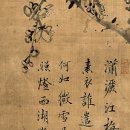 瀟灑江梅
素衣誰遣
何如微雪
照 西湖